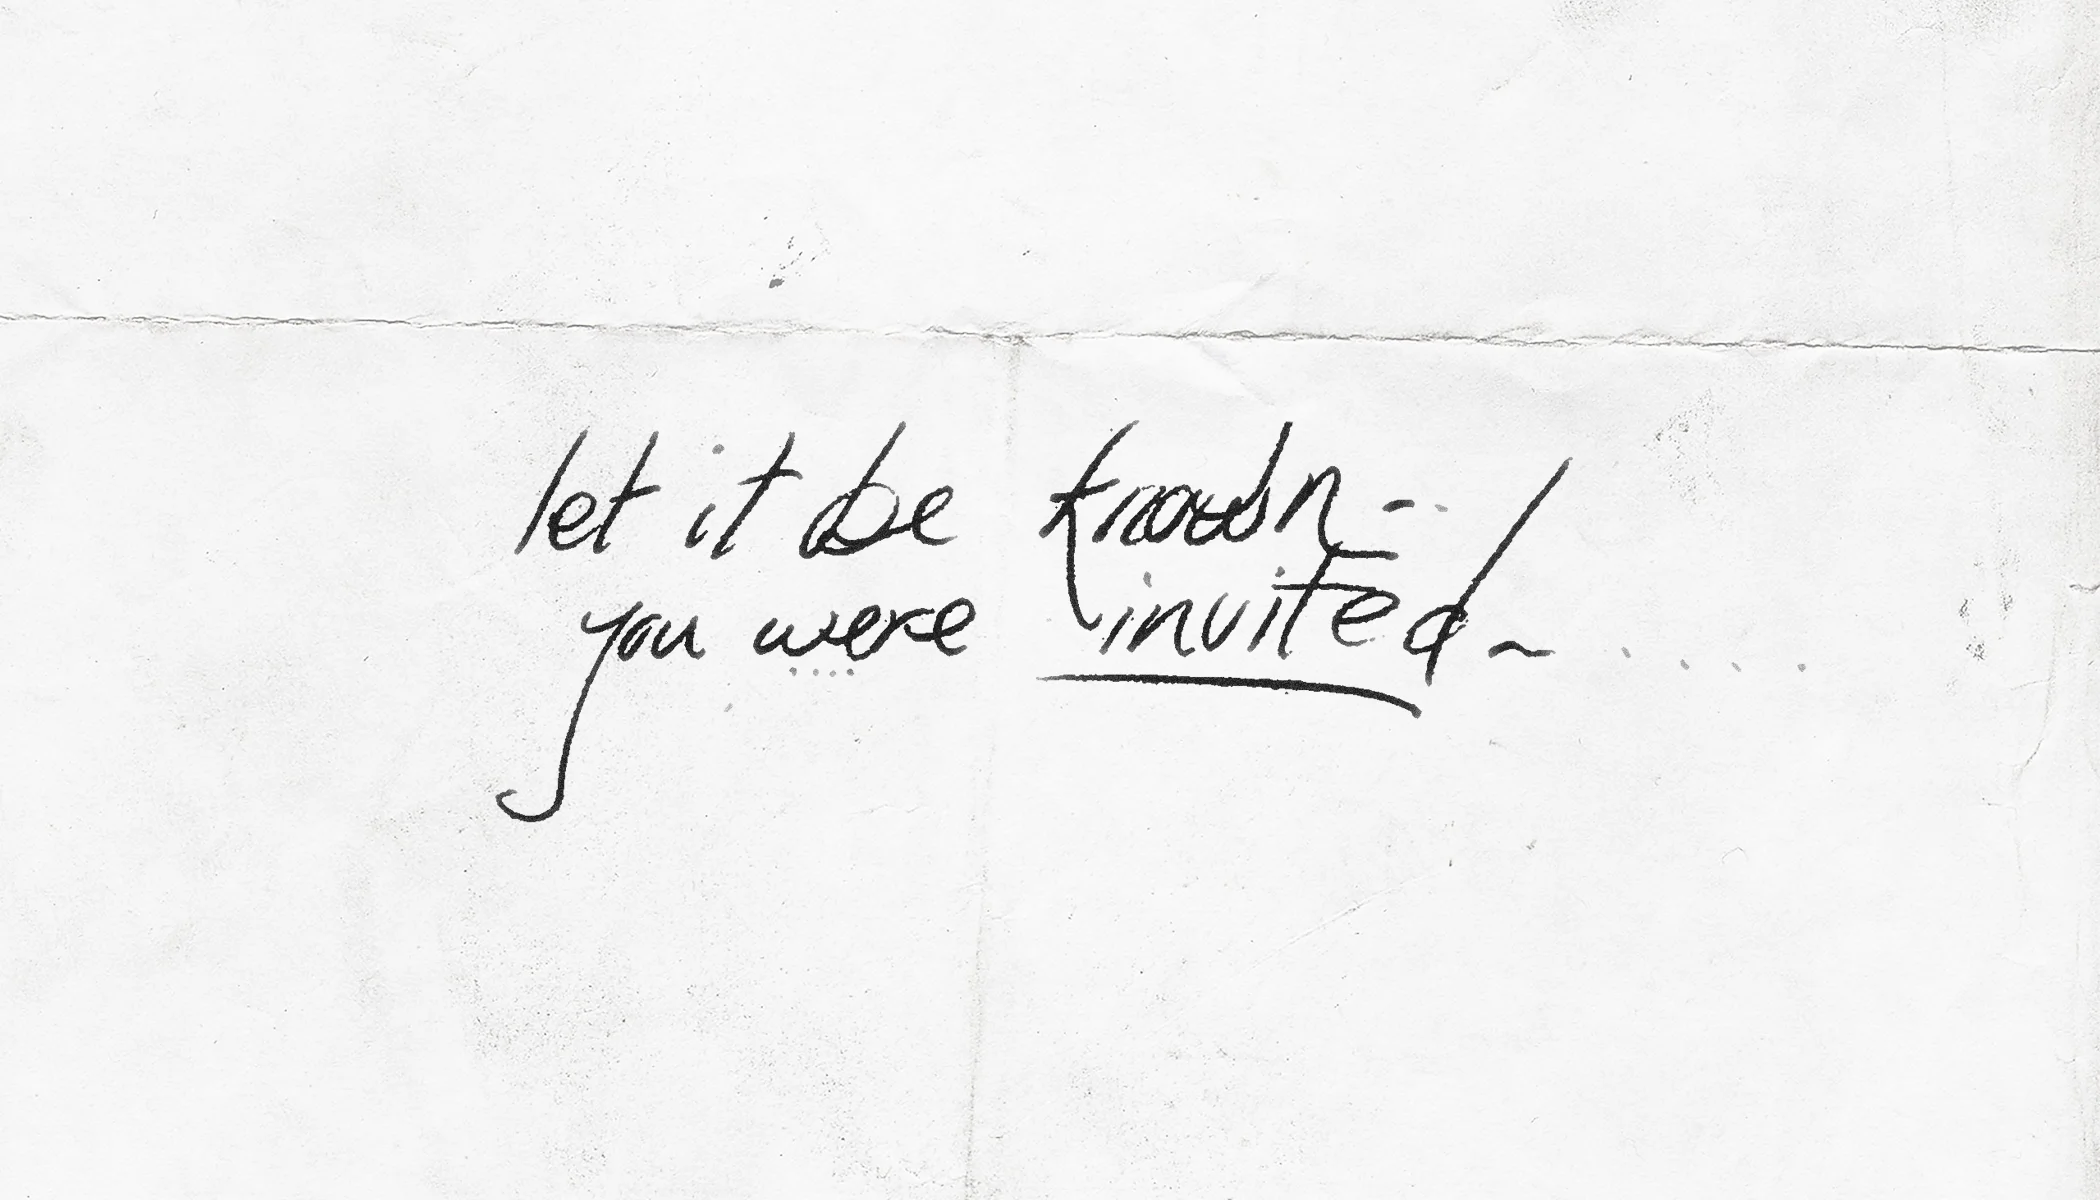 let it be known--
you were invited~ . . . .